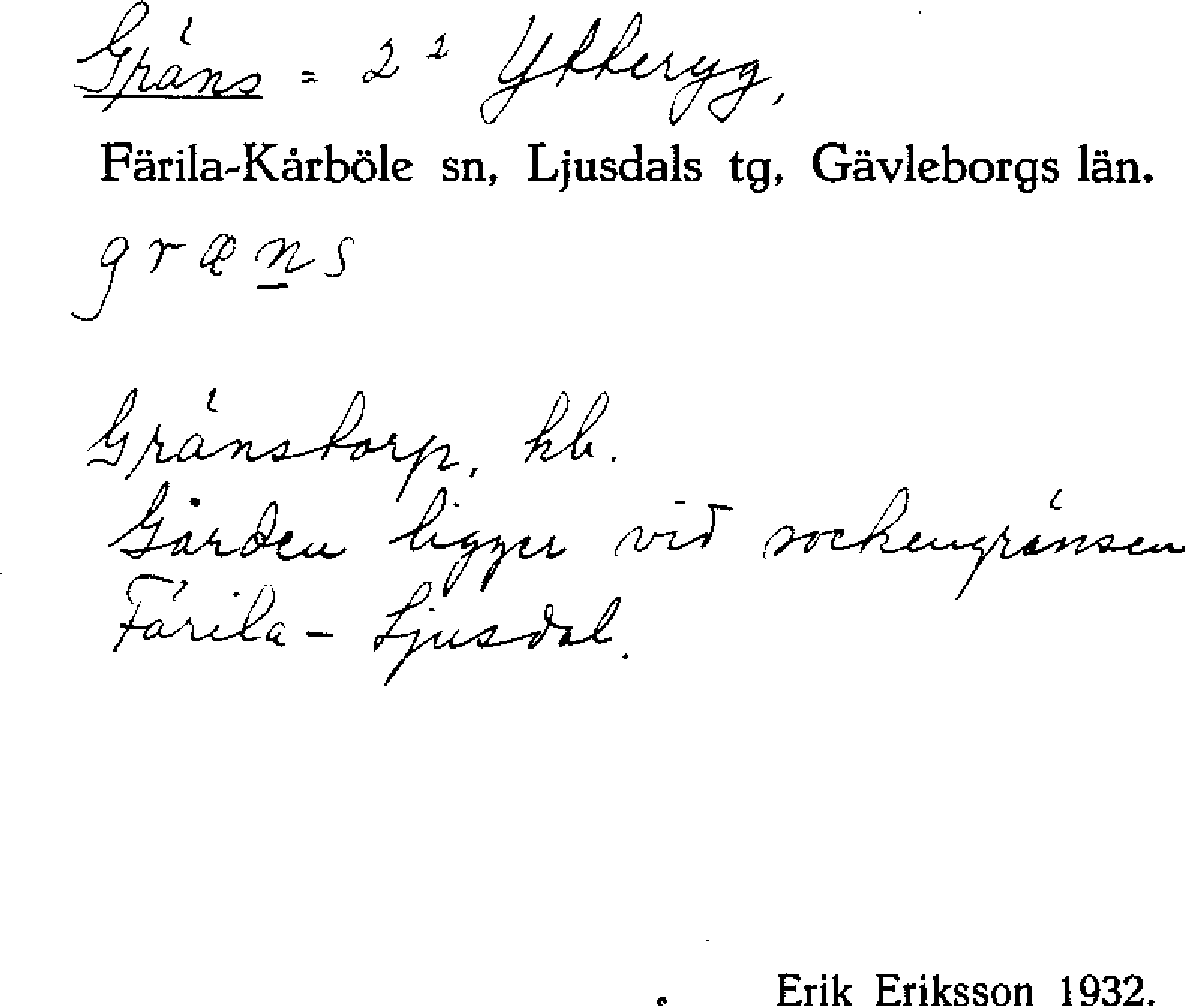 Gräns = 2² Ytteryg,
Färila-Kårböle sn, Ljusdals tg, Gävleborgs län.
græn̲s
Gränstorp, kb.
Gården ligger vid sockengränsen
Färila - Ljusdal.
Erik Eriksson 1932.